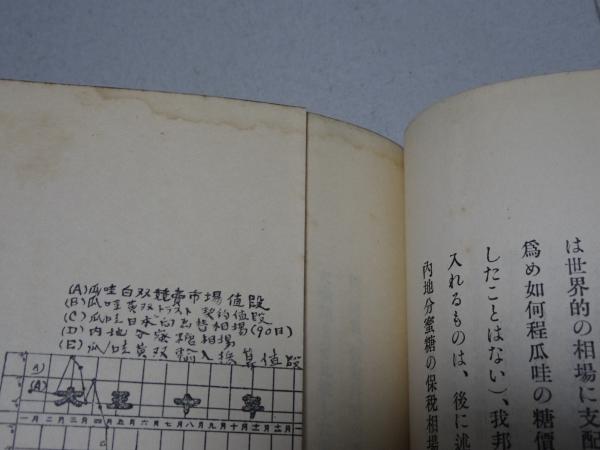 は世界的の相場に支配
爲め如何程瓜哇の糖價
したことはない)、我邦
入れるものは、後に述
內地分蜜糖の保税相場
(A)瓜哇白双 市場値段
(B)瓜哇黄双トラスト契約値段
(C)瓜哇日本向爲替相場(90日)
(D)内地分蜜糖相場
(E)瓜哇黄双輸入採算値段
A)
(A)
大正十年
一月二月三月四月五月六月七月八月九月十月十一月十二月一